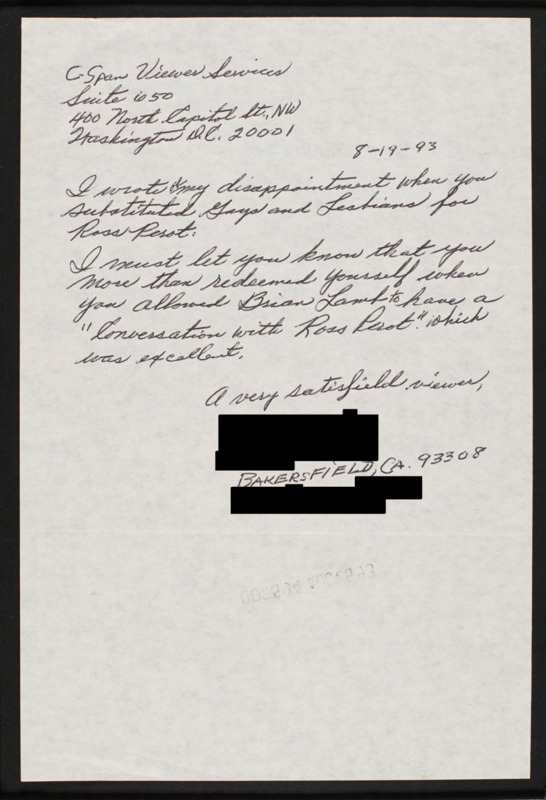 C-Span Viewer Services
Suite 650
400 North Capitol St., NW
Washington D.C. 20001
8-19-93
I wrote my disappointment when you
substituted Gays and Lesbians for
Ross Perot.
I must let you know that you
more than redeemed yourself when
you allowed Brian Lamb to have a
"Conversation with Ross Perot." which
was excellent.
A very satisfield viewer,
BAKERSFIELD, CA. 93308